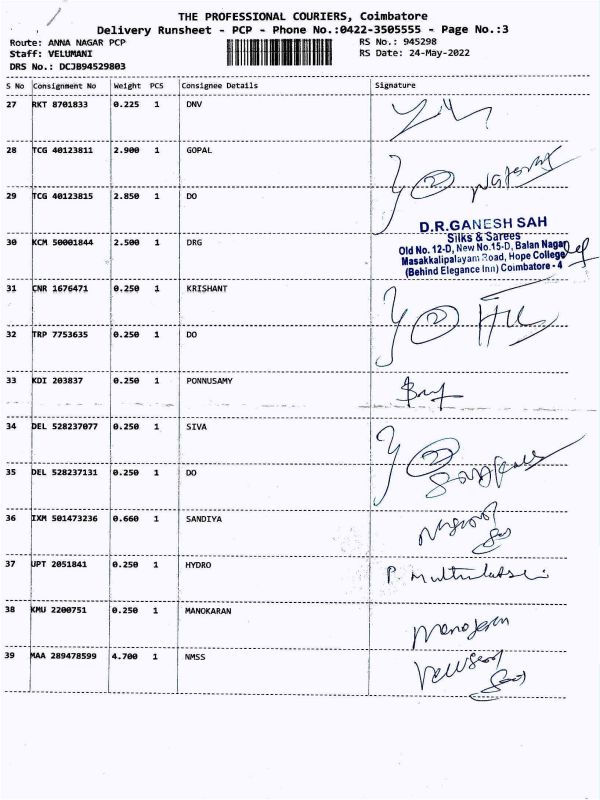 THE PROFESSIONAL COURIERS, Coimbatore
Delivery Runsheet - PCP - Phone No.:0422-3505555 - Page No.:3
Route: ANNA NAGAR PCP RS No.: 945298
Staff: VELUMANI RS Date: 24-May-2022
DRS No.: DCJB94529803
S No Consignment No Weight PCS Consignee Details Signature
27 RKT 8701833 0.225 1 DNV
28 TCG 40123811 2.900 1 GOPAL
29 TCG 40123815 2.850 1 DO
D.R.GANESH SAH
Silks & Sarees
30 KCM 50001844 2.500 1 DRG
Old No. 12-D, New No.15-D, Balan Nagar
Masakkalipalayam Road, Hope College
(Behind Elegance Inn) Coimbatore - 4
31 CNR 1676471 0.250 1 KRISHANT
32 TRP 7753635 0.250 1 DO
33 KDI 203837 0.250 1 PONNUSAMY
34 DEL 528237077 0.250 1 SIVA
35 DEL 528237131 0.250 1 DO
36 IXM 501473236 0.660 1 SANDIYA
37 UPT 2051841 0.250 1 HYDRO
38 KMU 2200751 0.250 1 MANOKARAN
39 MAA 289478599 4.700 1 NMSS